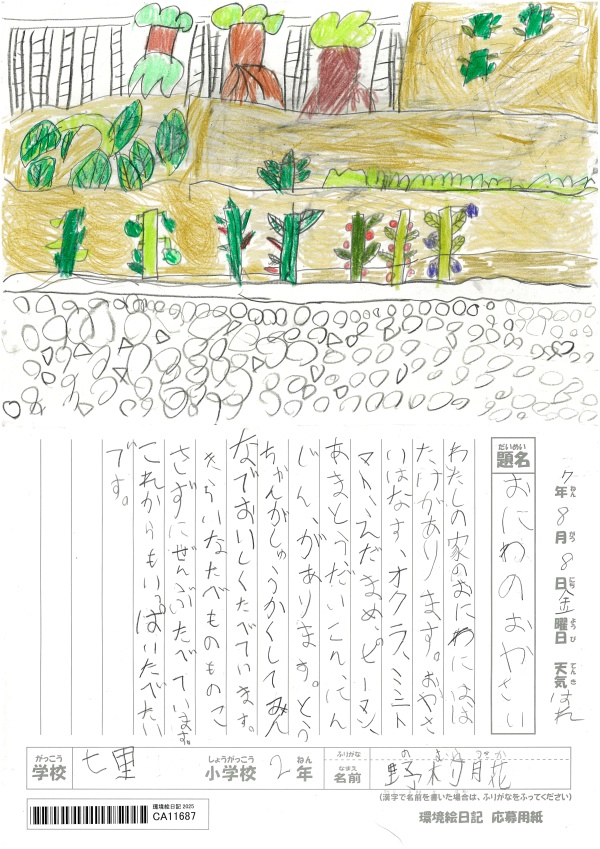 7年8月8日金曜日 天気はれ
ねん がつ にち ようび てんき
だいめい
題名
おにわのおやさい
わたしの家のおにわにはは
たけがあります。おやさ
いはなす、オクラ、ミニト
マト、えだまめ、ピーマン、
あまとう、だいこん、にん
じん、があります。とう
ちゃんがしゅうかくしてみん
なでおいしくたべています。
きらいなたべものものこ
さずにぜんぶたべています。
これからもいっぱいたべたい
です。
がっこう
学校
七里
しょうがっこう
小学校
2
ねん
年
ふりがな
なまえ
名前
野村
花
(漢字で名前を書いた場合は、ふりがなをふってください)
環境絵日記 応募用紙
環境絵日記 2025
CA11687